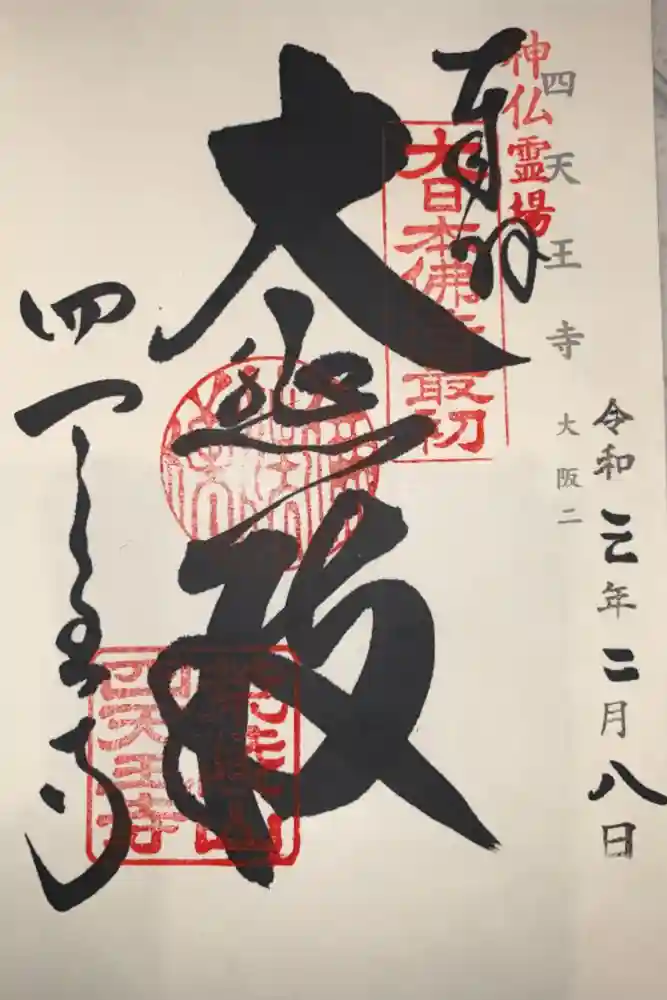 令和三年二月八日
四天王寺 大阪二
神仏霊場
奉拝
大日本佛法最初
大悲殿
荒陵山
四天王寺
四天王寺